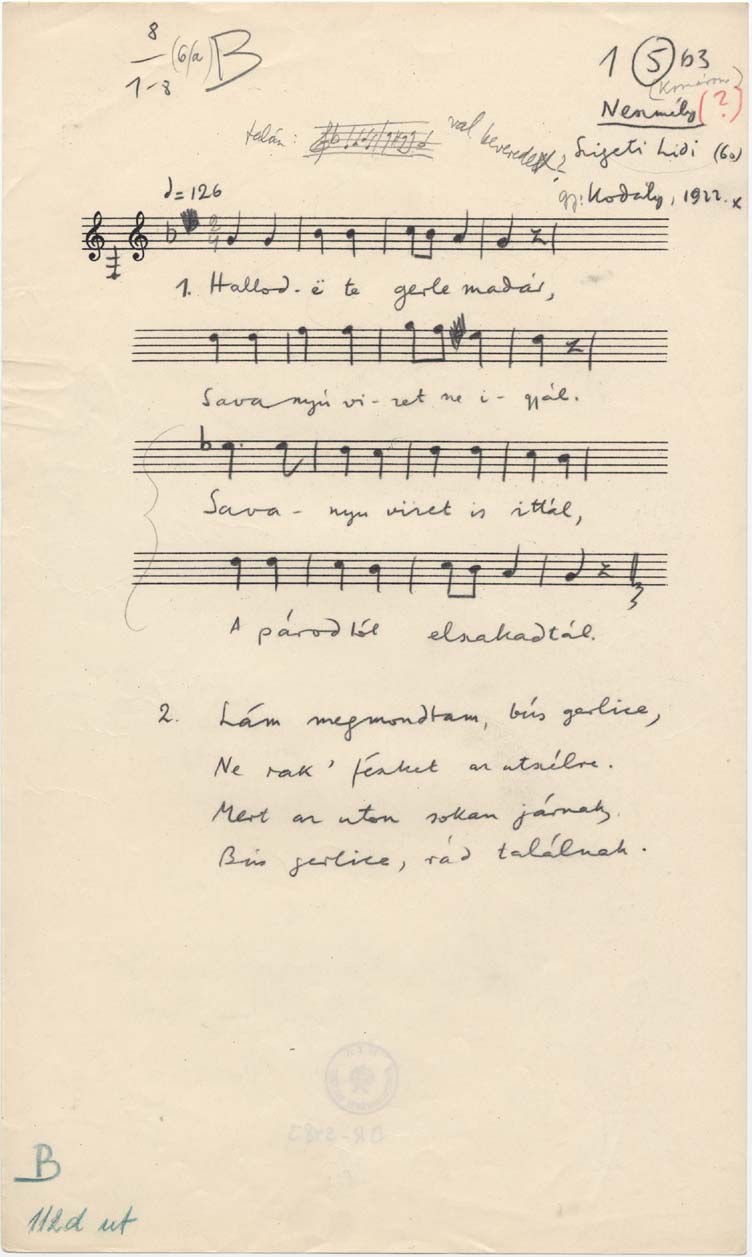 8
1-8 (6/a) B
1 (5) b3
(Komárom)
Neszmély (?)
talán: val keveredett?
Szigeti Lidi (60)
gy: Kodály, 1922. x
♩= 126
2
4
1. Hallod-ë te gerle madár,
Savanyú vi-zet ne i-gyál.
Sava-nyu vizet is ittál,
A párodtól elszakadtál.
2. Lám megmondtam, bús gerlice,
Ne rak' fészket az utszélre.
Mert az uton sokan járnak,
Bús gerlice, rád találnak.
B
112d ut